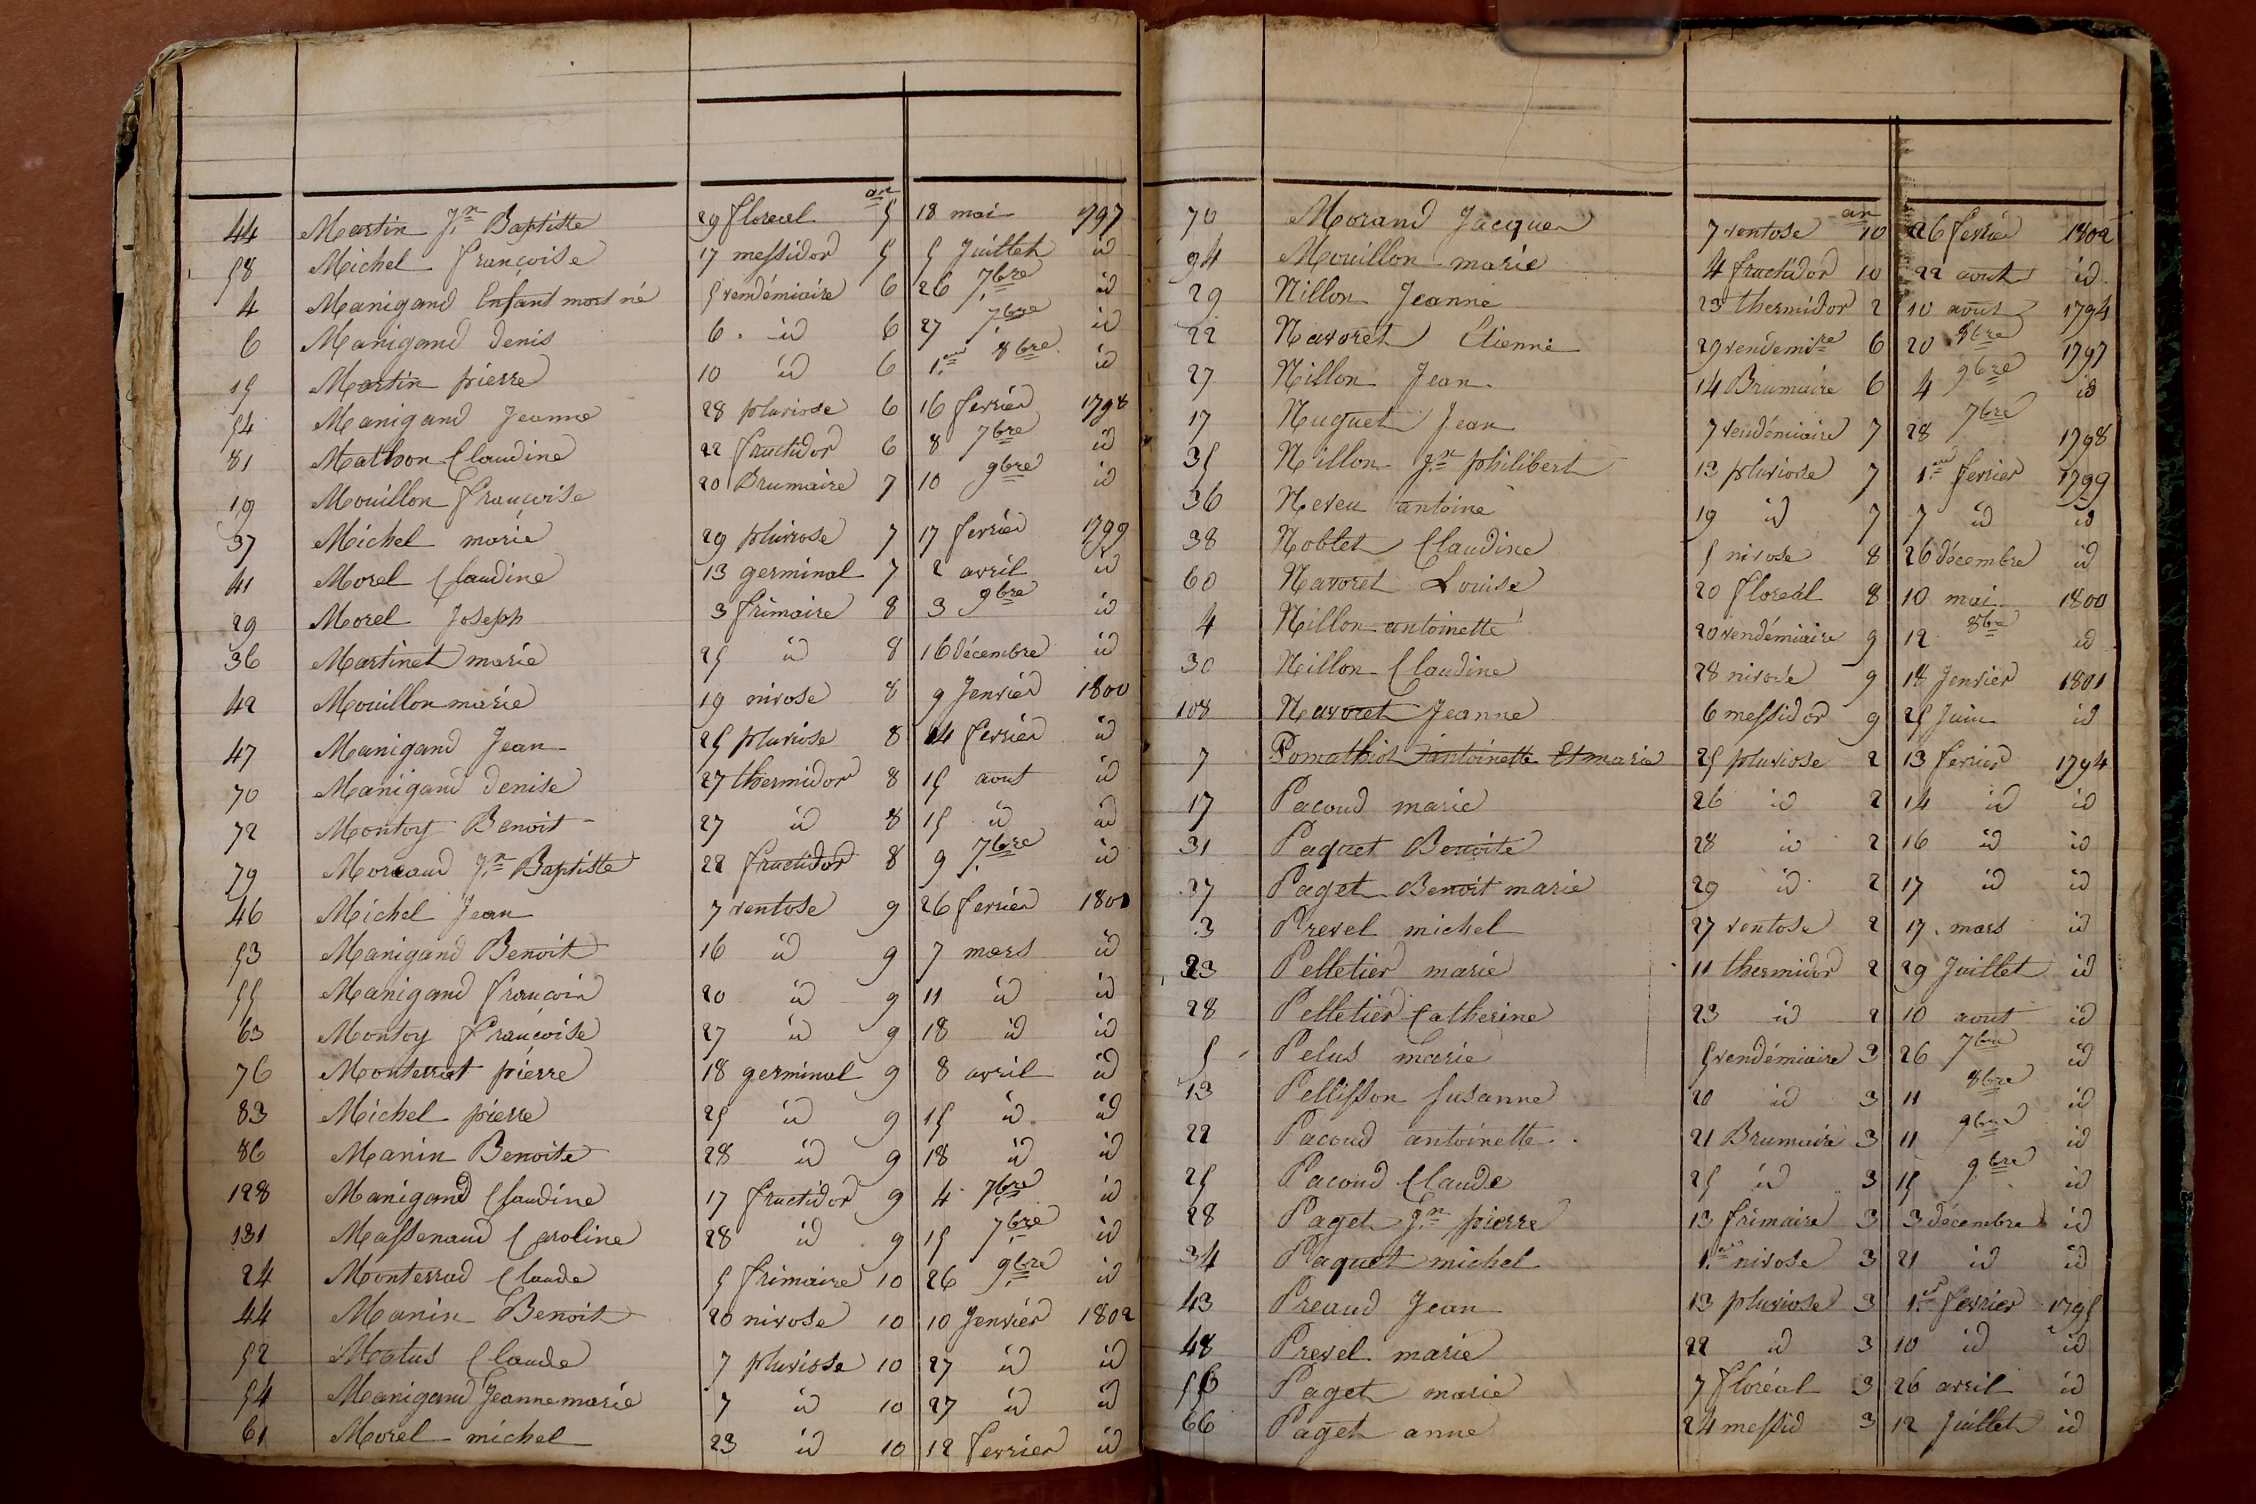 an
44 Martin Jn Baptiste 29 floreal 5 18 mai 1797
58 Michel françoise 17 messidor 5 5 Juillet id
4 Manigand Enfant mort né 5 vendémiaire 6 26 7bre id
6 Manigand denis 6 id 6 27 7bre id
15 Martin pierre 10 id 6 1er 8bre id
54 Manigand Jeanne 28 pluviose 6 16 fevrier 1798
81 Mathon Claudine 22 fructidor 6 8 7bre id
19 Mouillon françoise 20 Brumaire 7 10 9bre id
37 Michel marie 29 pluviose 7 17 fevrier 1799
41 Morel Claudine 13 germinal 7 2 avril id
29 Morel Joseph 3 frimaire 8 3 9bre id
36 Martinet marie 25 id 8 16 décembre id
42 Mouillon marie 19 nivose 8 9 Jenvier 1800
47 Manigand Jean 25 pluviose 8 14 fevrier id
70 Manigand denise 27 thermidor 8 15 aout id
72 Montoy Benoit 27 id 8 15 id id
79 Moreaud Jn Baptiste 22 fructidor 8 9 7bre id
46 Michel Jean 7 ventose 9 26 fevrier 1801
53 Manigand Benoit 16 id 9 7 mars id
55 Manigand françois 20 id 9 11 id id
63 Montoy françoise 27 id 9 18 id id
76 Monterrat pierre 18 germinal 9 8 avril id
83 Michel pierre 25 id 9 15 id id
86 Manin Benoite 28 id 9 18 id id
128 Manigand Claudine 17 fructidor 9 4 7bre id
131 Massenaud Caroline 28 id 9 15 7bre id
24 Monterrad Claude 5 frimaire 10 26 9bre id
44 Manin Benoit 20 nivose 10 10 Jenvier 1802
52 Matus Claude 7 pluviose 10 27 id id
54 Manigand Jeanne marie 7 id 10 27 id id
61 Morel michel 23 id 10 12 fevrier id
an
70 Morand Jacques 7 ventose 10 26 fevrier 1802
94 Mouillon marie 4 fructidor 10 22 aout id
29 Nillon Jeanne 23 thermidor 2 10 aout 1794
22 Navoret Etienne 29 vendemire 6 20 8bre 1797
27 Nillon Jean 14 Brumaire 6 4 9bre id
17 Nuguet Jean 7 vendémiaire 7 28 7bre 1798
35 Nillon Jn philibert 13 pluviose 7 1er fevrier 1799
36 Neveu antoine 19 id 7 7 id id
38 Noblet Claudine 5 nivose 8 26 décembre id
60 Navoret Louise 20 floréal 8 10 mai 1800
4 Nillon antoinette 20 vendémiaire 9 12 8bre id
30 Nillon Claudine 28 nivose 9 18 Jenvier 1801
108 Navoret Jeanne 6 messidor 9 25 Juin id
7 Pomathiot antoinette et marie 25 pluviose 2 13 fevrier 1794
17 Pacoud marie 26 id 2 14 id id
31 Paquet Benoite 28 id 2 16 id id
37 Paget Benoit marie 29 id 2 17 id id
3 Prevel michel 27 ventose 2 17 mars id
23 Pelletier marie 11 thermidor 2 29 Juillet id
28 Pelletier Catherine 23 id 2 10 aout id
5 Pelus marie 5 vendémiaire 3 26 7bre id
13 Pellisson Susanne 20 id 3 11 8bre id
22 Pacoud antoinette 21 Brumaire 3 11 9bre id
25 Pacoud Claude 25 id 3 15 9bre id
28 Paget Jn pierre 13 frimaire 3 3 décembre id
34 Paquet michel 1er nivose 3 21 id id
43 Preaud Jean 13 pluviose 3 1er fevrier 1795
48 Prevel marie 22 id 3 10 id id
56 Paget marie 7 floréal 3 26 avril id
66 Paget anne 24 messid 3 12 Juillet id